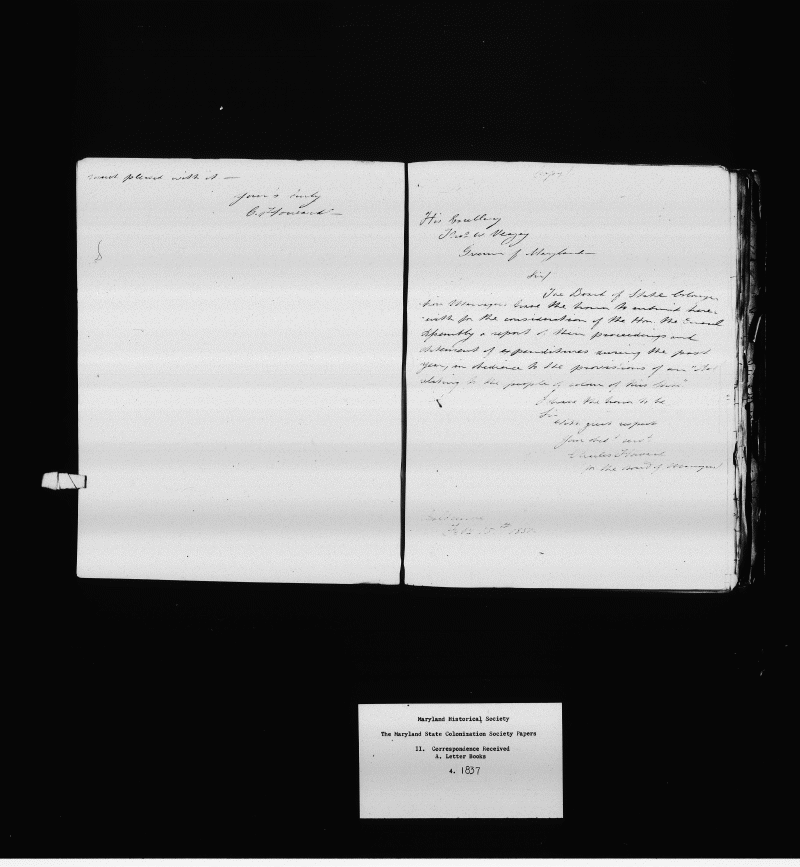 much pleased with it —
Yours truly
C. Howard —
(copy)
His Excellency
Thos W Veazey
Governor of Maryland —
Sir/
The Board of State Coloniza-
tion Managers have the honor to submit here-
with for the consideration of the Hon. the General
Assembly a report of their proceedings and
statement of expenditures during the past
year, in obedience to the provisions of an "Act
relating to the people of colour of this State"
I have the honor to be
Sir
With great respect
Your obdt servt
Charles Howard
for the Board of Managers
Baltimore
Feb
Maryland Historical Society
The Maryland State Colonization Society Papers
II. Correspondence Received
A. Letter Books
4. 1837